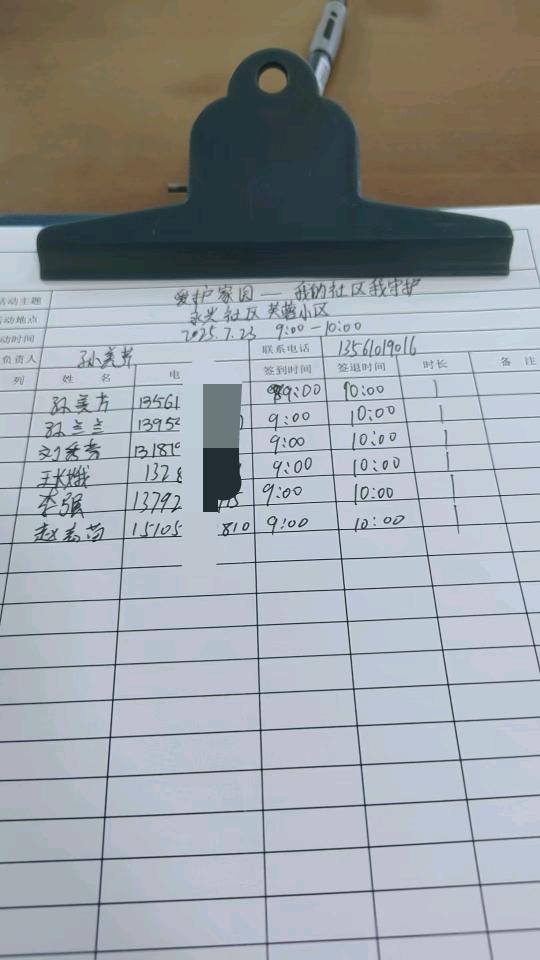 活动主题 爱护家园—我的社区我守护
活动地点 永兴社区芙蓉小区
动时间 2025.7.23 9:00-10:00
负责人 孙美芳 联系电话 13561019016
列 姓 名 电 签到时间 签退时间 时长 备 注
孙美芳 13561 9:00 10:00 1
孙兰兰 1395 9:00 10:00 1
刘秀芳 13181 9:00 10:00 1
王 娥 132 8 9:00 10:00 1
李强 13792 5 9:00 10:00 1
赵 苗 15105 810 9:00 10:00 1